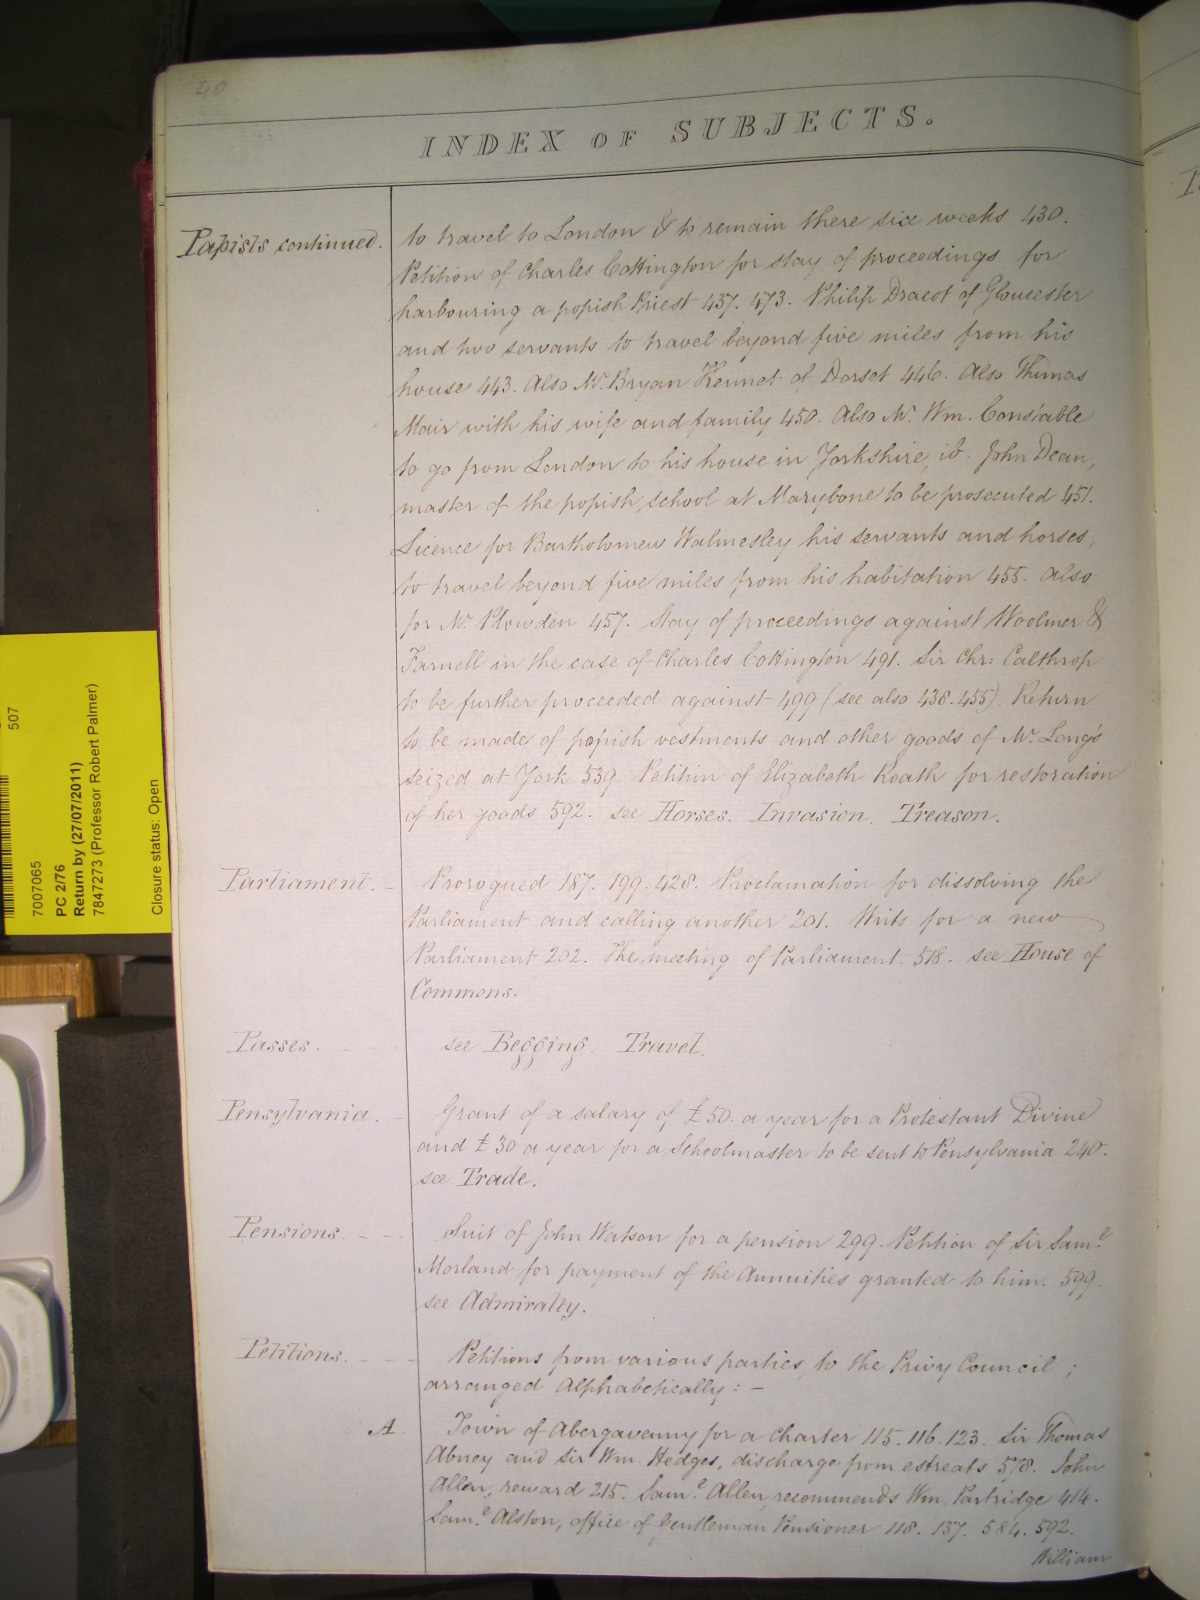 40
INDEX OF SUBJECTS.
Papists continued.
to travel to London & to remain there six weeks 430.
Petition of Charles Cottington for stay of proceedings for
harbouring a popish Priest 437. 473. Philip Dracot of Gloucester
and two servants to travel beyond five miles from his
house 443. Also Mr. Bryan Kennet of Dorset 446. Also Thomas
Mair with his wife and family 450. Also Mr. Wm. Constable
to go from London to his house in Yorkshire, ib. John Dean,
master of the popish school at Marybone to be prosecuted 451.
Licence for Bartholomew Walmesley his servants and horses,
to travel beyond five miles from his habitation 455. Also
for Mr. Plowden 457. Stay of proceedings against Woolmer &
Farnell in the case of Charles Cottington 491. Sir Chr: Calthrop
to be further proceeded against 499 (see also 438. 455). Return
to be made of popish vestments and other goods of Mr. Long's
seized at York 539. Petition of Elizabeth Roath for restoration
of her goods 592. see Horses. Invasion. Treason.
Parliament. -
Prorogued 187. 199. 428. Proclamation for dissolving the
Parliament and calling another 201. Writs for a new
Parliament 202. The meeting of Parliament 518. see House of
Commons.
Passes. - -
see Begging. Travel.
Pensylvania. -
Grant of a salary of £50 a year for a Protestant Divine
and £30 a year for a Schoolmaster to be sent to Pensylvania 240.
see Trade.
Pensions. - -
Suit of John Watson for a pension 299. Petition of Sir Saml.
Morland for payment of the Annuities granted to him. 599.
see Admiralty.
Petitions. - - -
Petitions from various parties, to the Privy Council;
arranged Alphabetically: -
A
Town of Abergavenny for a Charter 115. 116. 123. Sir Thomas
Abney and Sir Wm. Hedges, discharge from estreats 578. John
Allen, reward 215. Saml. Allen recommends Wm. Partridge 414.
Saml. Alston, office of Gentleman Pensioner 118. 137. 584. 592.
William
507
7007065
PC 2/76
Return by (27/07/2011)
7847273 (Professor Robert Palmer)
Closure status: Open